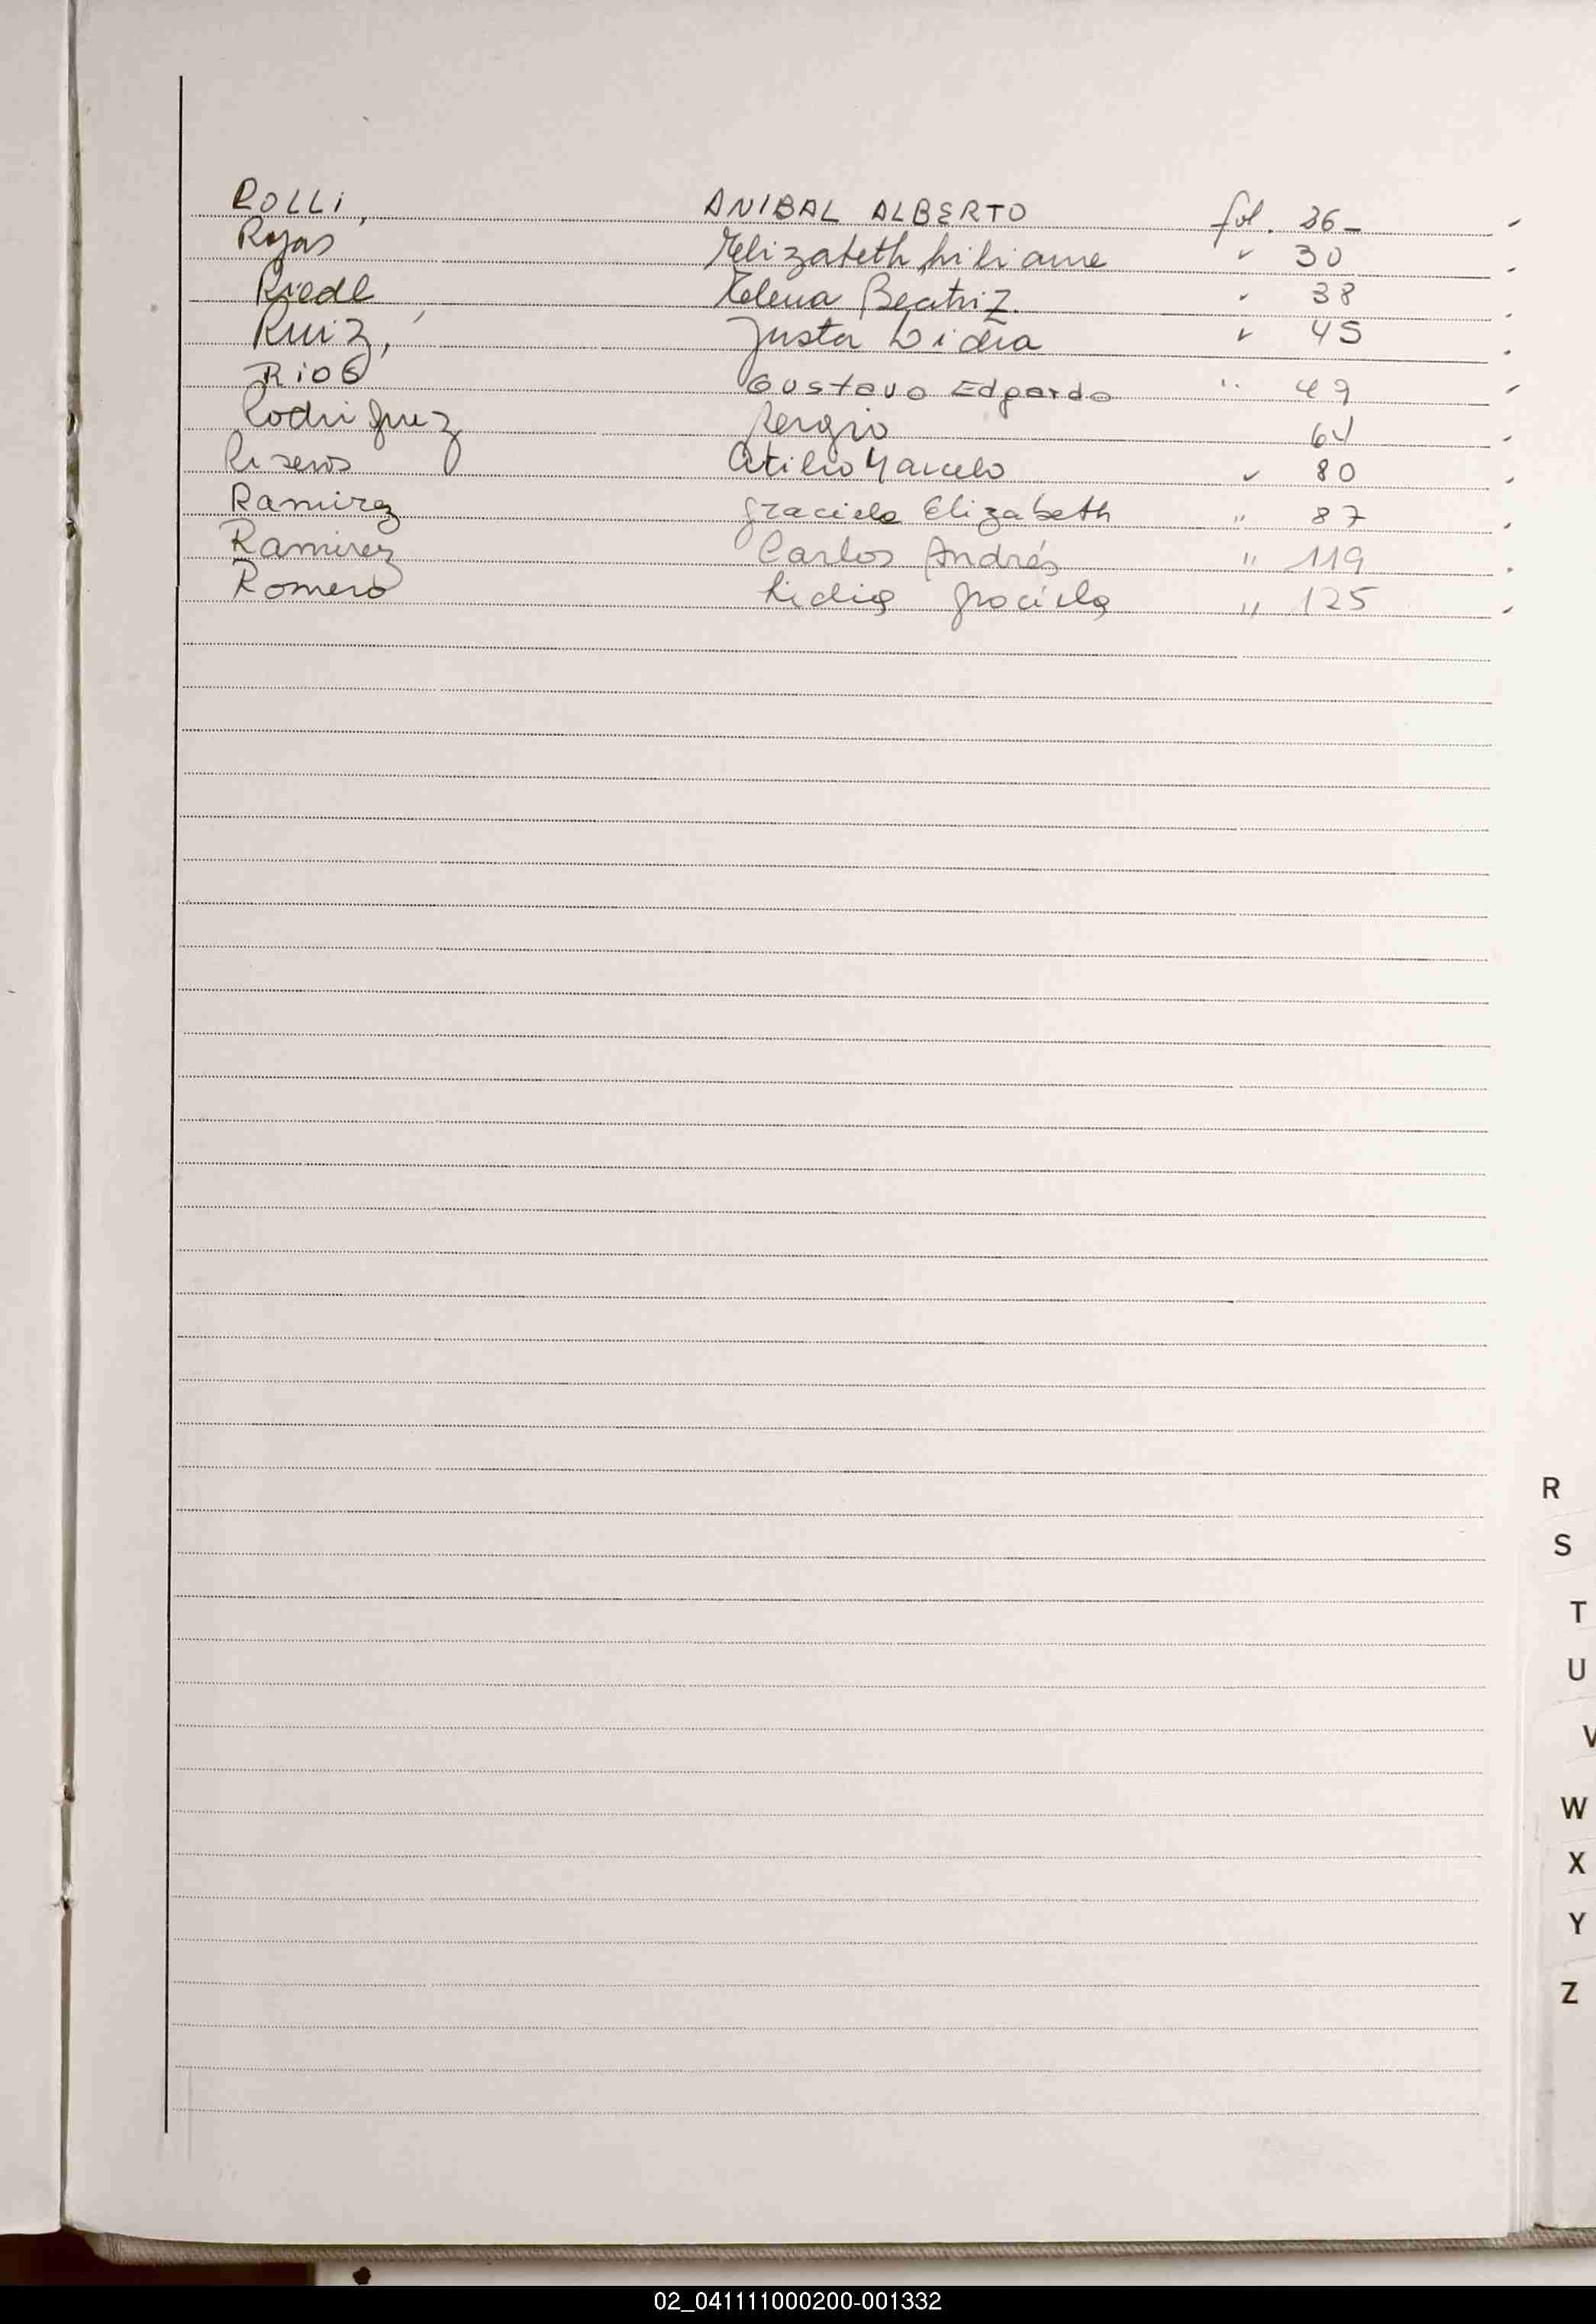 ROLLI, ANIBAL ALBERTO fol. 26-
Rojas Elizabeth Liliana " 30
Riedl, Elena Beatriz. " 38
Ruiz, Justa Lidia " 45
Rios Gustavo Edgardo " 49
Rodriguez Sergio 64
Riseros Atilio Marcelo " 80
Ramirez Graciela Elizabeth " 87
Ramirez Carlos Andrés " 119
Romero Lidia Graciela " 125
R
S
T
U
V
W
X
Y
Z
02_041111000200-001332